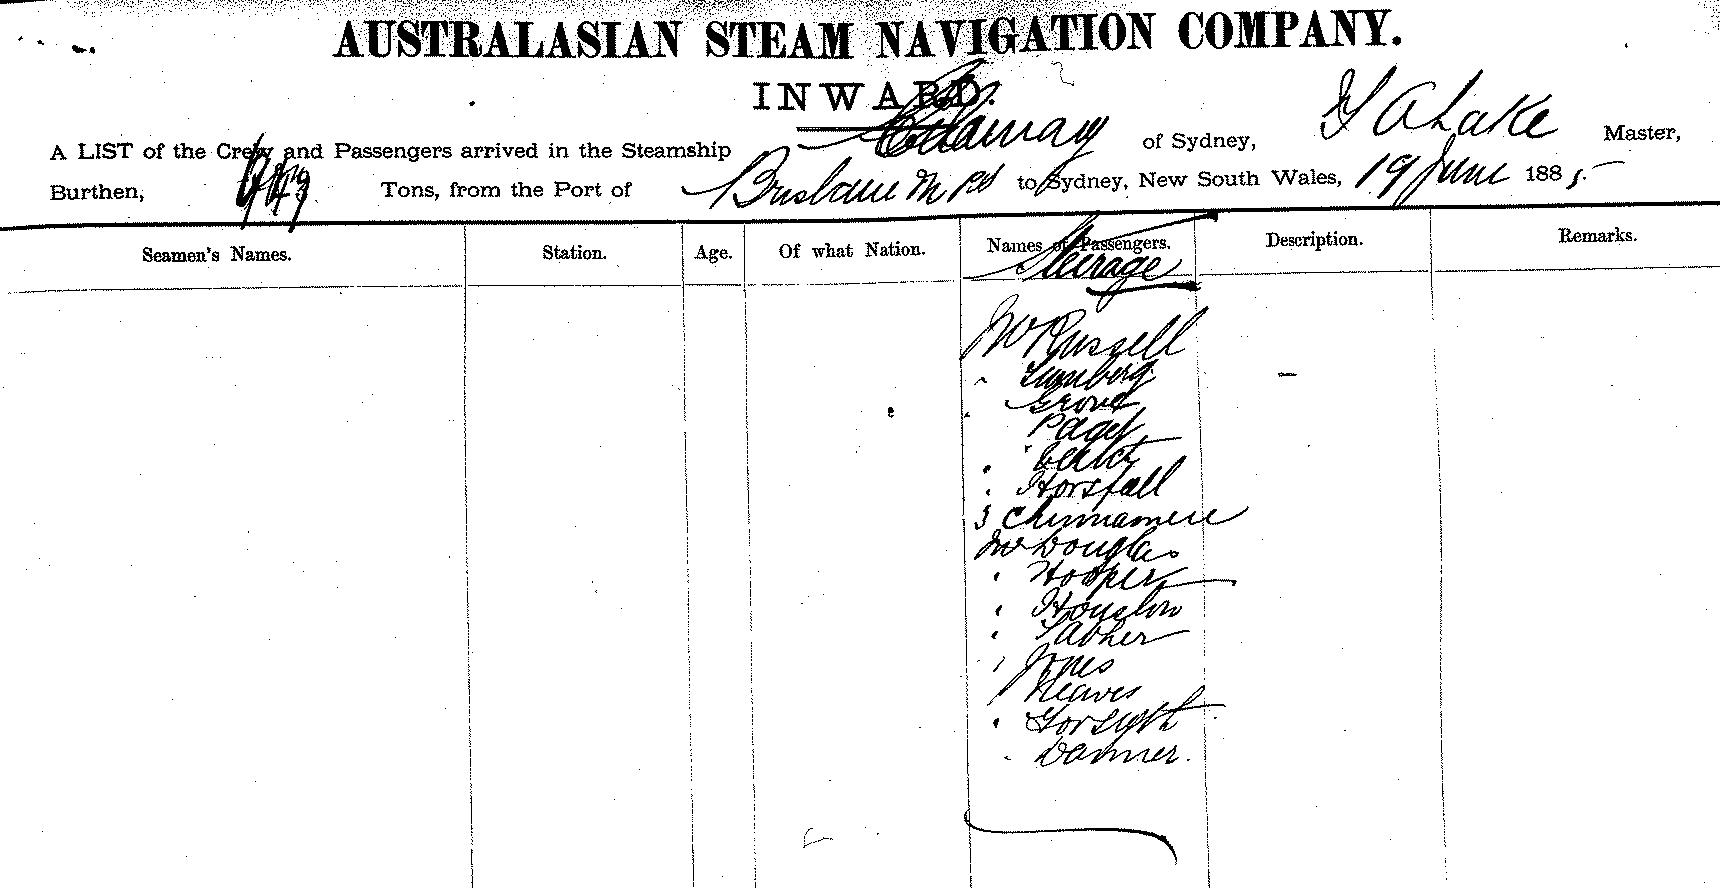 AUSTRALASIAN STEAM NAVIGATION COMPANY.
INWARD.
A LIST of the Crew and Passengers arrived in the Steamship of Sydney, Lake Master,
Burthen, Tons, from the Port of Brisbane to Sydney, New South Wales, 19 June 1885
Seamen's Names. Station. Age. Of what Nation. Names of Passengers. Description. Remarks.
Steerage
Mr Russell
Grove
Horsfall
3 Chinamen
Mr Douglas
Hooper
Houston
Jones
Neaves
Forsyth